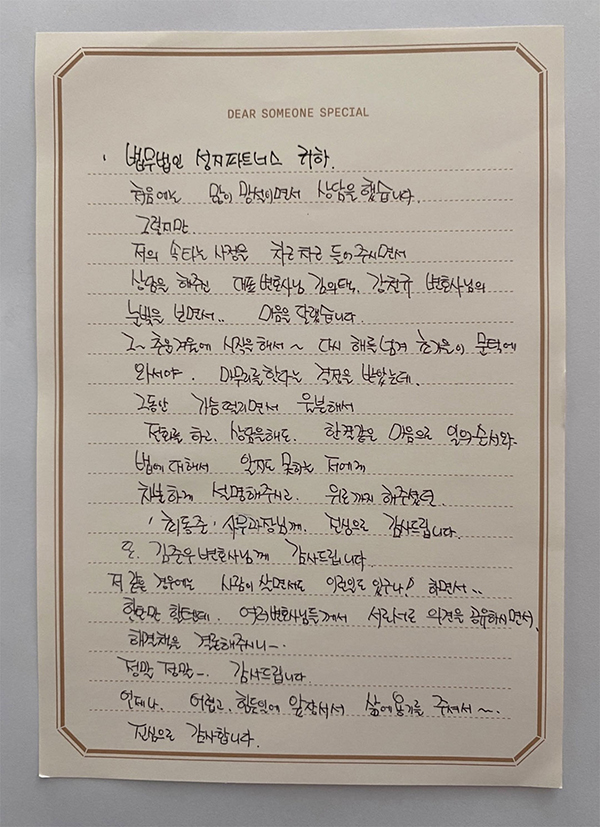 DEAR SOMEONE SPECIAL
법무법인 성지파트너스 귀하.
처음에는 많이 망설이면서 상담을 했습니다.
그렇지만
저의 속타는 사정을 차근차근 들어주시면서
상담을 해주신 대표변호사님 김의택, 강현규 변호사님의
눈빛을 보면서.. 마음을 달랬습니다.
그~ 추운겨울에 시작을 해서~ 다시 해를 넘겨 초겨울이 문턱에
와서야. 마무리를한다는 결정을 받았는데.
그동안 가슴떨리면서 울분해서
전화를 하고, 상담을해도. 한결같은 마음으로 일의순서와
법에 대해서 알지도 못하는 저에게
차분하게 설명해주시고. 위로까지 해주셨던
'최동준' 사무과장님께. 진심으로 감사드립니다.
또. 김준우변호사님께 감사드립니다.
저 같은 경우에는 사람이 살면서도 이런일도 있구나! 하면서..
한탄만 할텐데. 여러변호사님들께서 서로서로 의견을 공유하시면서,
해결책을 결론해주시니~.
정말 정말~. 감사드립니다.
언제나. 어렵고, 힘든일에 앞장서서 삶에용기를 주셔서~.
진심으로 감사합니다.